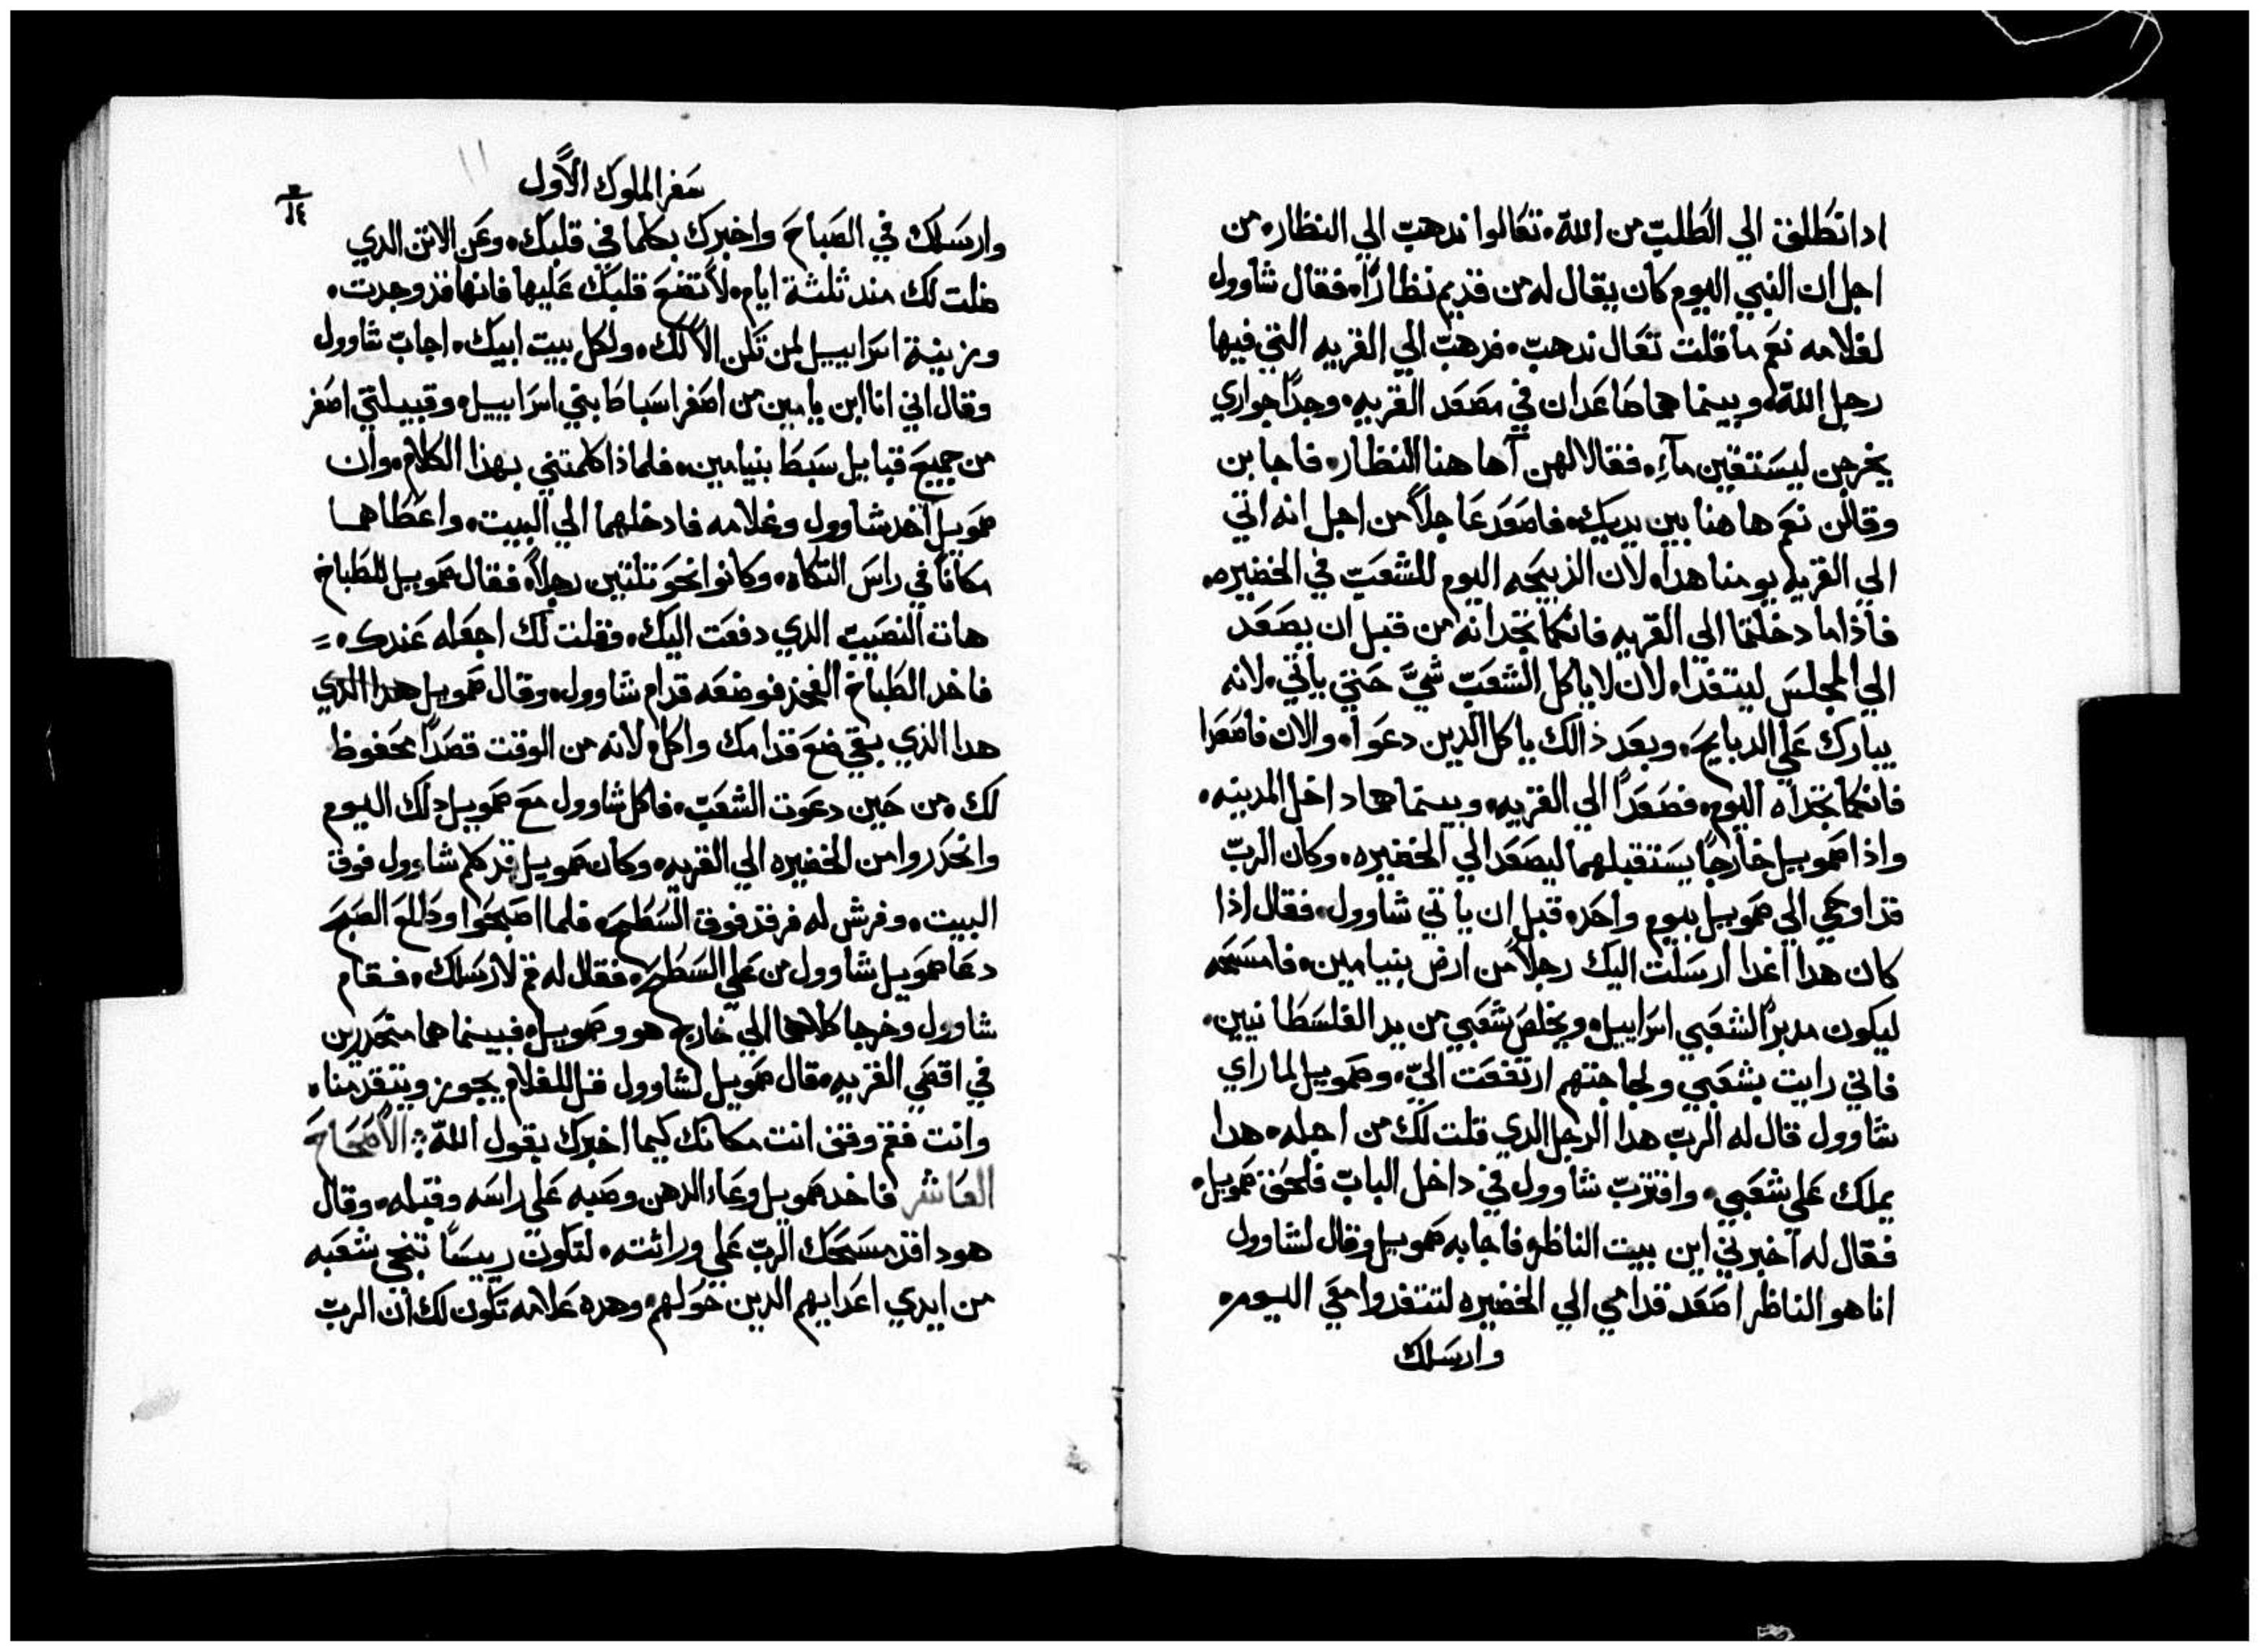 ادا انطلق الي الطلب من الله، تعالوا ندهب الي النظار، من
اجل ان النبي اليوم كان يقال له من قديم نظارًا، فقال شاوول
لغلامه نعم ما قلت تعال ندهب، فدهب الي القريه التي فيها
رجل الله، وبينما هما صاعدان في مصعد القريه، وجدا جواري
يخرجن ليستقين مآء، فقالا لهن آها هنا النظار، فاجابن
وقالن نعم ها هنا بين يديك، فاصعد عاجلاً من اجل انه اتي
الي القريه يومنا هدا، لان الذبيحه اليوم للشعب في الخضيره،
فاذا ما دخلتما الي القريه فانكما تجدانه من قبل ان يصعد
الي المجلس ليتغدا، لان لا ياكل الشعب شيَّ حتي ياتي، لانه
يبارك علي الدبايح، وبعد ذالك ياكل الدين دعوا، والان فاصعدا
فانكما تجداه اليوم، فصعدا الي القريه، وبينما هما داخل المدينه،
واذا صمويل خارجًا يستقبلهما ليصعد الي الخضيره، وكان الرب
قد اوحي الي صمويل بيوم واحد، قبل ان ياتي شاوول، فقال اذا
كان هدا اغدا ارسلت اليك رجلاً من ارض بنيامين، فامسحه
ليكون مدبرًا لشعبي اسراييل، ويخلص شعبي من يد الفلسطانيين،
فاني رايت بشعبي ولجاجتهم ارتفعت اليّ، وصمويل لما راي
شاوول قال له الرب هدا الرجل الدي قلت لك من اجله، هدا
يملك علي شعبي، واقترب شاوول في داخل الباب فلحق صمويل،
فقال له اخبرني اين بيت الناظر، فاجابه صمويل وقال لشاوول
انا هو الناظر اصعد قدامي الي الخضيره لتتغدوا معي اليوم،
وارسلك
سفر الملوك الاول
وارسلك في الصباح واخبرك بكلما في قلبك، وعن الاتن الدي
ضلت لك مند ثلثة ايام، لا تضع قلبك عليها فانها قد وجدت،
وزينة اسراييل لمن تكن الا لك، ولكل بيت ابيك، اجاب شاوول
وقال اني انا ابن يامين من اصغر اسباط بني اسراييل، وقبيلتي اصغر
من جميع قبايل سبط بنيامين، فلماذا كلمتني بهذا الكلام، وان
صمويل آخد شاوول وغلامه فادخلهما الي البيت، واعطاهما
مكانًا في راس التكاه، وكانوا نحو تلتين رجلاً، فقال صمويل للطباخ
هات النصيب الدي دفعت اليك، وقلت لك اجعله عندك،
فاخد الطباخ الفخذ فوضعه قدام شاوول، وقال صمويل هدا الدي
هدا الذي بقي ضع قدامك واكل، لانه من الوقت قصدًا محفوظ
لك، من حين دعوت الشعب، فاكل شاوول مع صمويل دلك اليوم
وانحدروا من الخضيره الي القريه، وكان صمويل قد كلم شاوول فوق
البيت، وفرش له فرقد فوق السطح، فلما اصبحوا وطلع الصبح
دعا صمويل شاوول من علي السطح، فقال له قم لارسلك، فقام
شاوول وخرجا كلاهما الي خارج هو وصمويل، فبينما هما منحدرين
في اقصي القريه، قال صمويل لشاوول قل للغلام يجوز ويتقدمنا،
وانت فقم وقف انت مكانك كيما اخبرك بقول الله، الاصحاح
العاشر فاخد صمويل وعاء الدهن وصبه علي راسه وقبله، وقال
هودا قد مسحك الرب علي وراثته، لتكون رييسًا تنجي شعبه
من ايدي اعدايهم الدين حولهم، وهده علامه تكون لك ان الرب